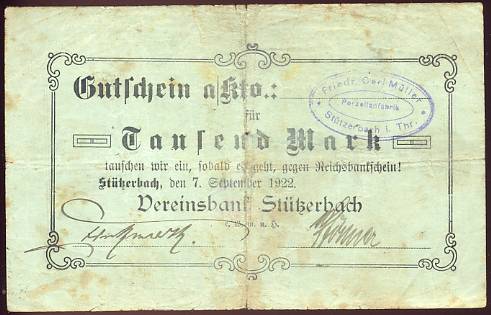 Gutschein a/Kto.:
Friedr. Carl Müller
Porzellanfabrik
Stützerbach i. Thr.
für
Tausend Mark
tauschen wir ein, sobald es geht, gegen Reichsbankschein!
Stützerbach, den 7. September 1922.
Vereinsbank Stützerbach